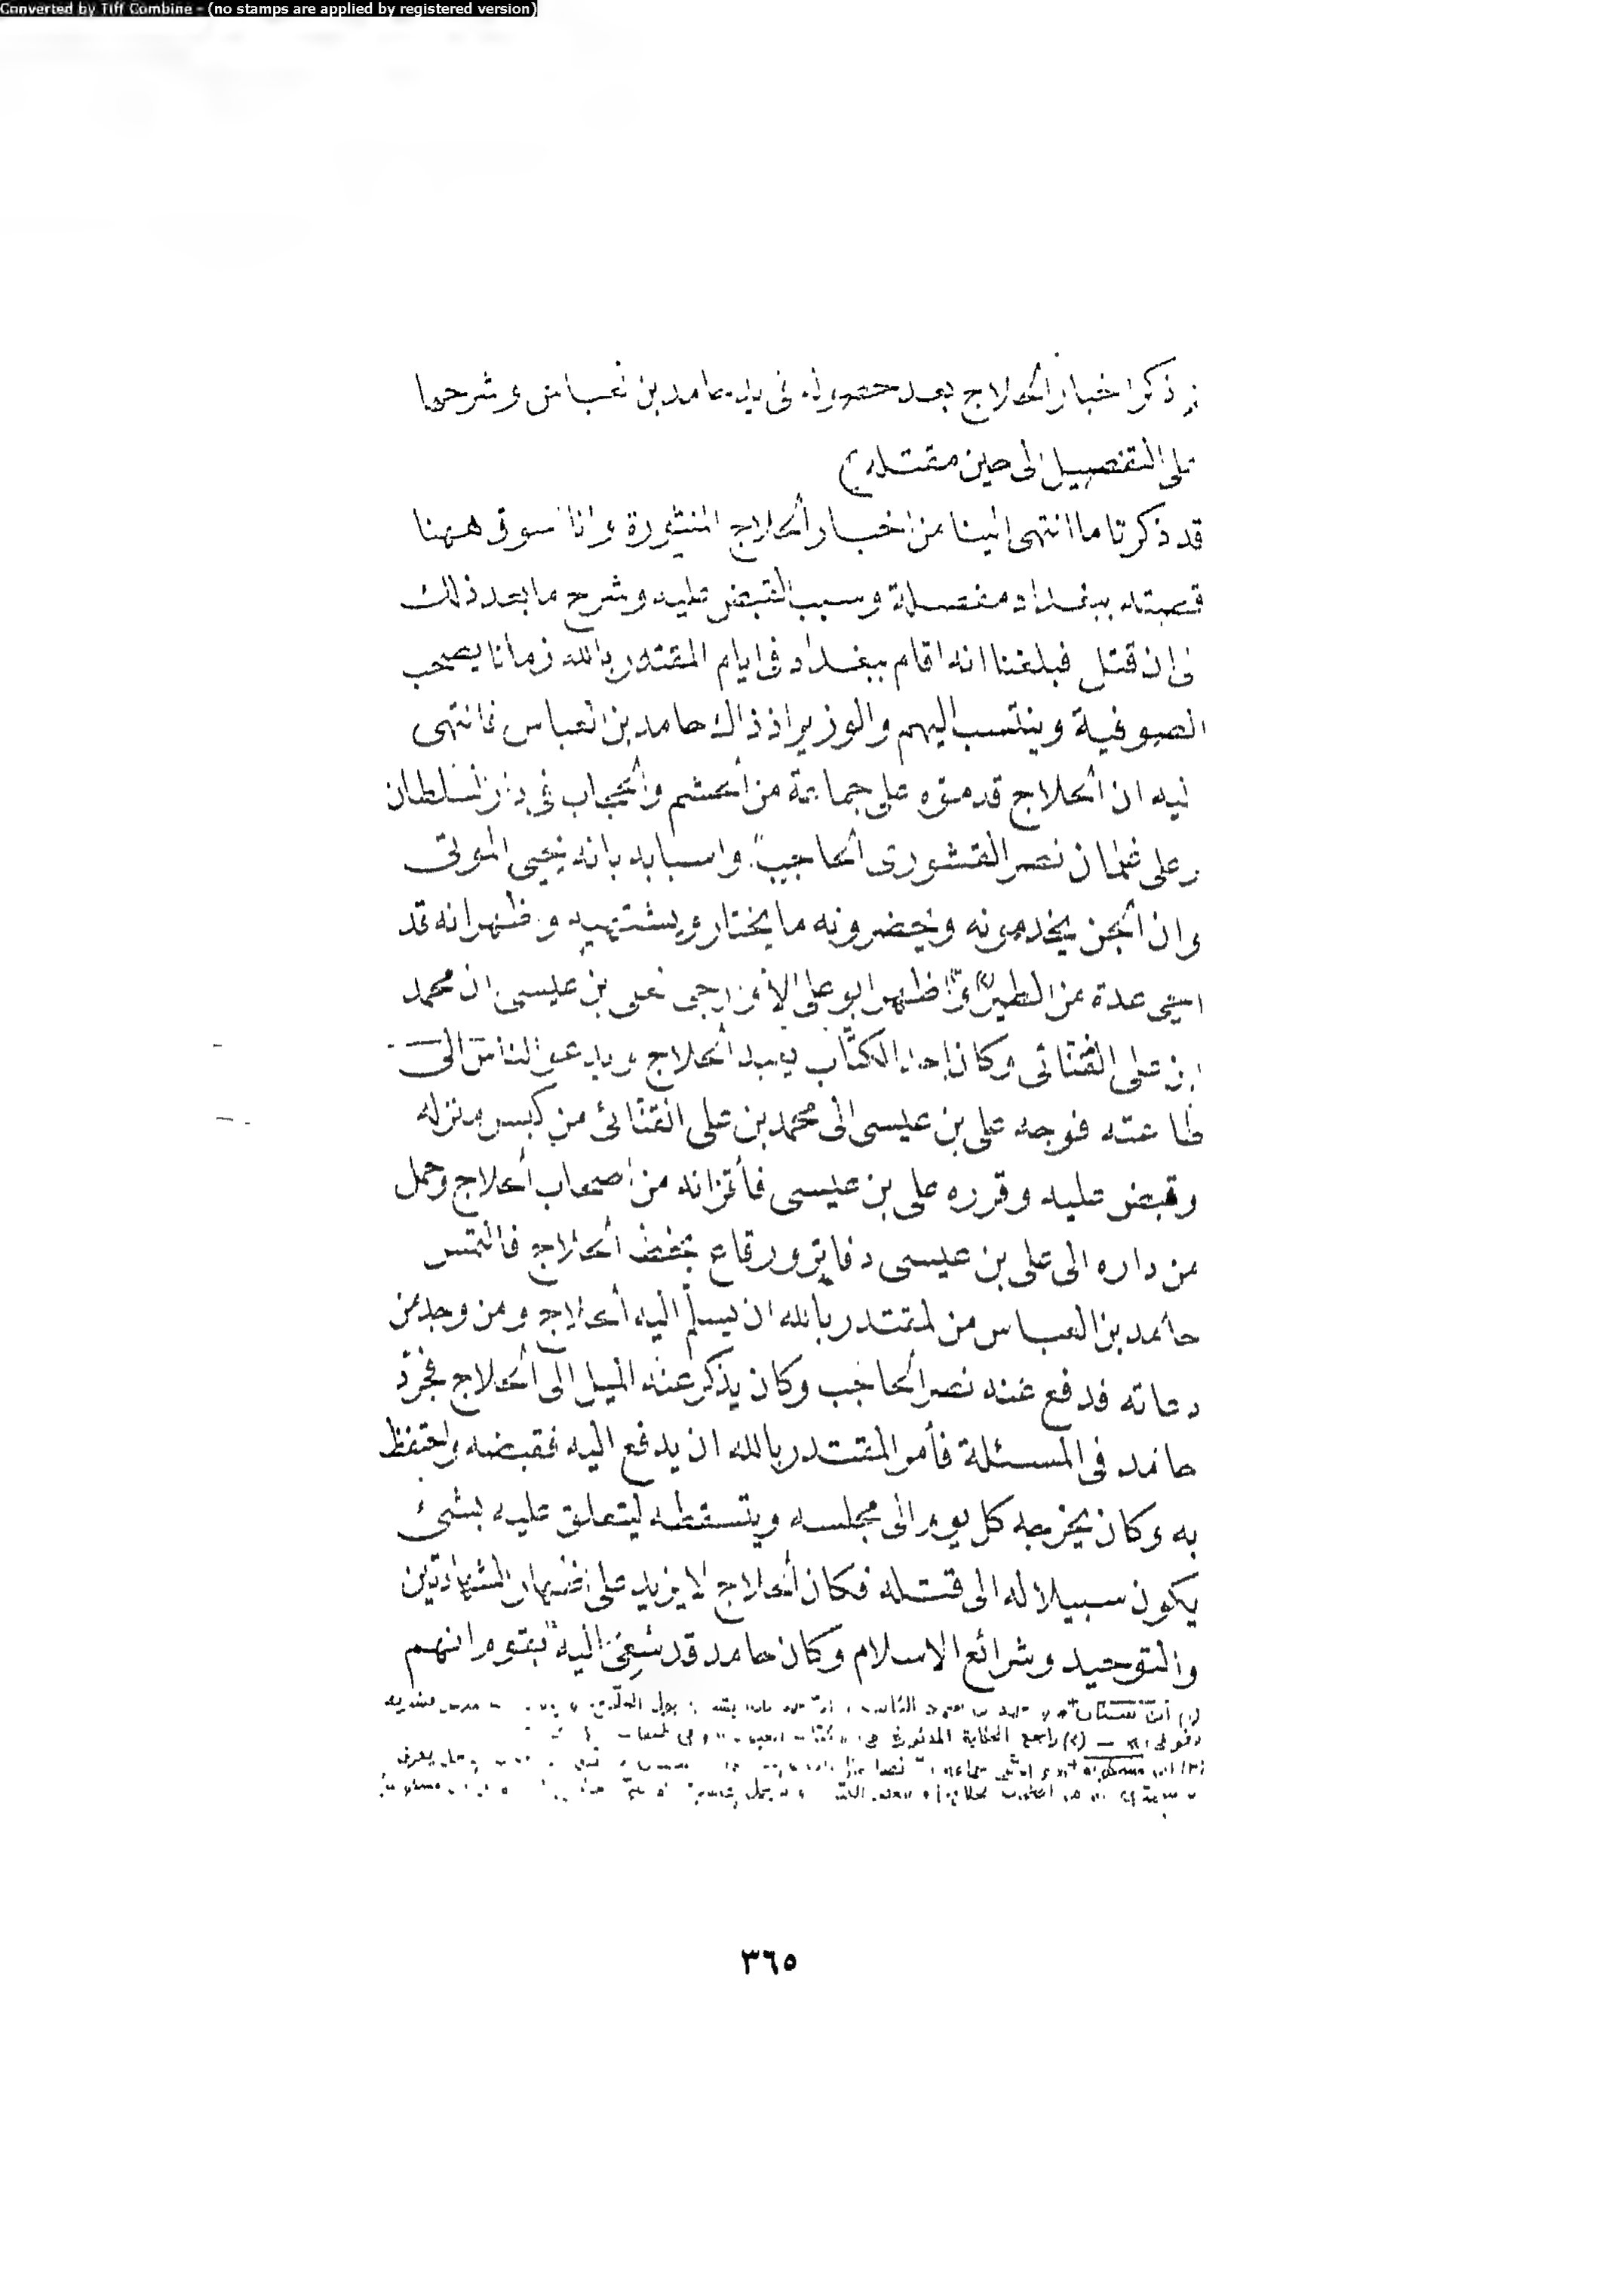 Converted by Tiff Combine - (no stamps are applied by registered version)
ذكر اخبار الحلاج بعد حصوله في يد حامد بن العباس وشرحها
على التفصيل الى حين مقتله)
قد ذكرنا ما انتهى الينا من اخبار الحلاج المنثورة وانا اسوق ههنا
قصته ببغداد مفصلة وسبب القبض عليه وشرح ما بعد ذلك
الى ان قتل فبلغنا انه اقام ببغداد فى ايام المقتدر بالله زمانا يصحب
الصوفية وينتسب اليهم والوزير اذ ذاك حامد بن العباس فانتهى
اليه ان الحلاج قد موّه على جماعة من الحشم والحجاب فى دار السلطان
وعلى غلمان نصر القشورى الحاجب واسبابه بانه يحيى الموتى
وان الجن يخدمونه ويحضرونه ما يختار ويشتهيه واظهر انه قد
احيى عدة من الطير (٢) و(٣) اظهر ابو على الاوارجى لعلى بن عيسى ان محمد
ابن على القنّائى وكان احد الكتّاب يعبد الحلاج ويدعو الناس الى
طاعته فوجه على بن عيسى الى محمد بن على القنّائى من كبس منزله
وقبض عليه وقرره على بن عيسى فأقرّ انه من اصحاب الحلاج وحمل
من داره الى على بن عيسى دفاتر ورقاع بخط الحلاج فالتمس
حامد بن العباس من المقتدر بالله ان يسلّم اليه الحلاج ومن وجد من
دعاته فدفع عنه نصر الحاجب وكان يذكر عنه الميل الى الحلاج فجرّد
حامد فى المسئلة فأمر المقتدر بالله ان يدفع اليه فقبضه واحتفظ
به وكان يخرجه كل يوم الى مجلسه ويتسقطه ليتعلق عليه بشئ
يكون سبيلا له الى قتله فكان الحلاج لا يزيد على اظهار الشهادتين
والتوحيد وشرائع الاسلام وكان حامد قد سُعِىَ اليه بقوم انهم
(٢) راجع الحكاية
٣٦٥